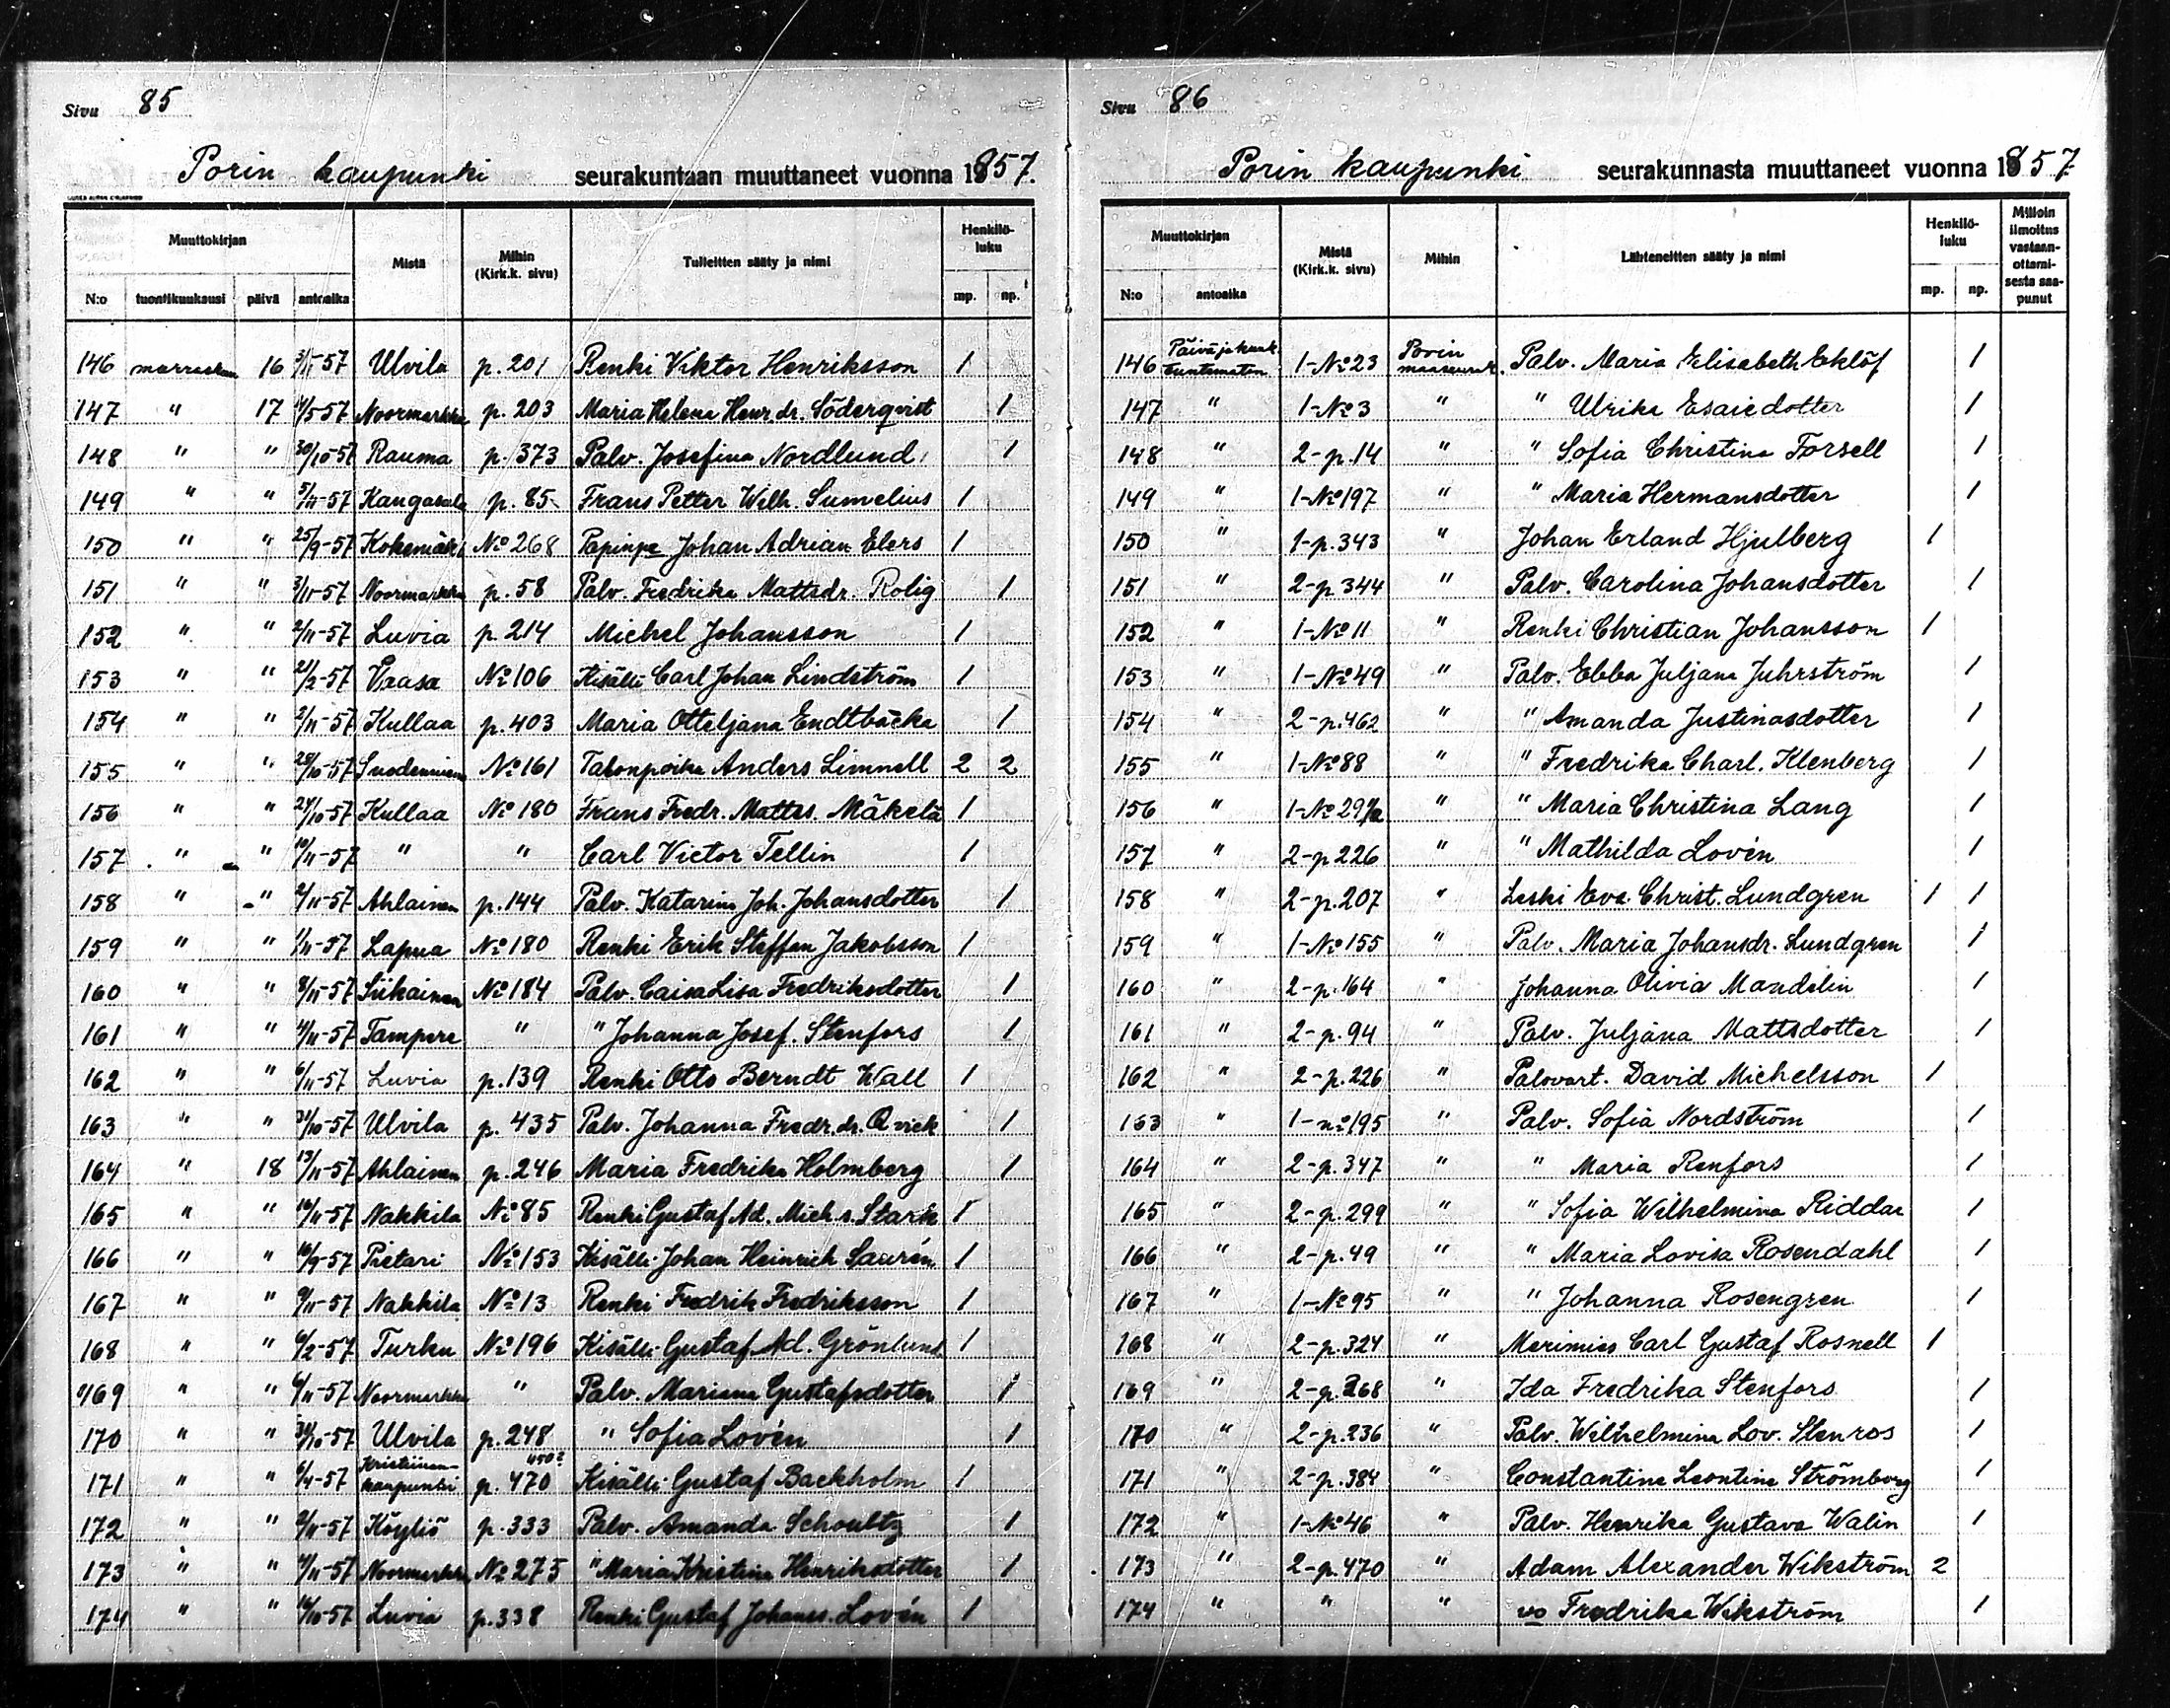 Sivu 85
Porin kaupunki seurakuntaan muuttaneet vuonna 1857.
Muuttokirjan Mistä Mihin (Kirk.k. sivu) Tulleitten sääty ja nimi Henkilö-luku
N:o tuontikuukausi päivä antoaika mp. np.
146 marraskuu 16 3/11-57 Ulvila p. 201 Renki Viktor Henriksson 1
147 " 17 4/5 57 Noormarkku p. 203 Maria Helena Henr. dr. Söderqvist 1
148 " " 30/10-57 Rauma p. 373 Palv. Josefina Nordlund 1
149 " " 5/11-57 Kangasala p. 85 Frans Petter Wilh. Sumelius 1
150 " " 25/9-57 Kokemäki No 268 Johan Adrian Elers 1
151 " " 3/11-57 Noormarkku p. 58 Palv. Fredrika Mattsdr. Rolig 1
152 " " 2/11-57 Luvia p. 214 Michel Johansson 1
153 " " 21/2-57 Vaasa No 106 Kisälli Carl Johan Lindström 1
154 " " 2/11-57 Kullaa p. 403 Maria Otteljana Endtbäcka 1
155 " " 28/10-57 Suodenniemi No 161 Talonpoika Anders Limnell 2 2
156 " " 24/10-57 Kullaa No 180 Frans Fredr. Matts. Mäkelä 1
157 " " 10/11-57 " " Carl Victor Tellin 1
158 " " 2/11-57 Ahlainen p. 144 Palv. Katarina Joh. Johansdotter 1
159 " " 1/11-57 Lapua No 180 Renki Erik Steffan Jakobsson 1
160 " " 8/11-57 Siikainen No 184 Palv. Caisa Lisa Fredriksdotter 1
161 " " 4/11-57 Tampere " " Johanna Josef. Stenfors 1
162 " " 6/11-57 Luvia p. 139 Renki Otto Berndt Wall 1
163 " " 31/10-57 Ulvila p. 435 Palv. Johanna Fredr. dr. Qvick 1
164 " 18 13/11-57 Ahlainen p. 246 Maria Fredrika Holmberg 1
165 " " 10/11-57 Nakkila No 85 Renki Gustaf Ad. Mich. s. Stark 1
166 " " 16/9-57 Pietari No 153 Kisälli Johan Heinrich Saurén 1
167 " " 9/11-57 Nakkila No 13 Renki Fredrik Fredriksson 1
168 " " 6/2-57 Turku No 196 Kisälli Gustaf Ad. Grönlund 1
169 " " 6/11-57 Noormarkku " Palv. Mariana Gustafsdotter 1
170 " " 30/10-57 Ulvila p. 248 " Sofia Lovén 1
171 " " 6/4-57 Kristiinankaupunki p. 470 450? Kisälli Gustaf Backholm 1
172 " " 2/11-57 Köyliö p. 333 Palv. Amanda Schoultz 1
173 " " 4/11-57 Noormarkku No 275 " Maria Kristina Henriksdotter 1
174 " " 16/10-57 Luvia p. 338 Renki Gustaf Johanss. Lovén 1
Sivu 86
Porin kaupunki seurakunnasta muuttaneet vuonna 1857
Muuttokirjan Mistä (Kirk.k. sivu) Mihin Lähteneitten sääty ja nimi Henkilö-luku Milloin ilmoitus vastaan-ottami-sesta saa-punut
N:o antoaika mp. np.
146 Päivä ja kuuk. tuntematon 1-No 23 Porin maaseurak. Palv. Maria Elisabeth Eklöf 1
147 " 1-No 3 " " Ulrika Esaiedotter 1
148 " 2-p. 14 " " Sofia Christina Forsell 1
149 " 1-No 197 " " Maria Hermansdotter 1
150 " 1-p. 343 " Johan Erland Hjulberg 1
151 " 2-p 344 " Palv. Carolina Johansdotter 1
152 " 1-No 11 " Renki Christian Johansson 1
153 " 1-No 49 " Palv. Ebba Juljana Juhrström 1
154 " 2-p. 462 " " Amanda Justinasdotter 1
155 " 1-No 88 " " Fredrika Charl. Klenberg 1
156 " 1-No 29 1/2 " " Maria Christina Lang 1
157 " 2-p 226 " " Mathilda Lovén 1
158 " 2-p. 207 " Leski Eva Christ. Lundgren 1 1
159 " 1-No 155 " Palv. Maria Johansdr. Lundgren 1
160 " 2-p. 164 " Johanna Olivia Mandelin 1
161 " 2-p. 94 " Palv. Juljana Mattsdotter 1
162 " 2-p. 226 " Palovart. David Michelsson 1
163 " 1-no 195 " Palv. Sofia Nordström 1
164 " 2-p. 347 " " Maria Renfors 1
165 " 2-p. 299 " " Sofia Wilhelmina Riddar 1
166 " 2-p. 49 " " Maria Lovisa Rosendahl 1
167 " 1-No 95 " " Johanna Rosengren 1
168 " 2-p. 324 " Merimies Carl Gustaf Rosnell 1
169 " 2-p. 268 " Ida Fredrika Stenfors 1
170 " 2-p. 236 " Palv. Wilhelmina Lov. Stenros 1
171 " 2-p. 384 " Constantina Leontina Strömberg 1
172 " 1-No 46 " Palv. Henrika Gustava Walin 1
173 " 2-p. 470 " Adam Alexander Wikström 2
174 " " " vo Fredrika Wikström 1